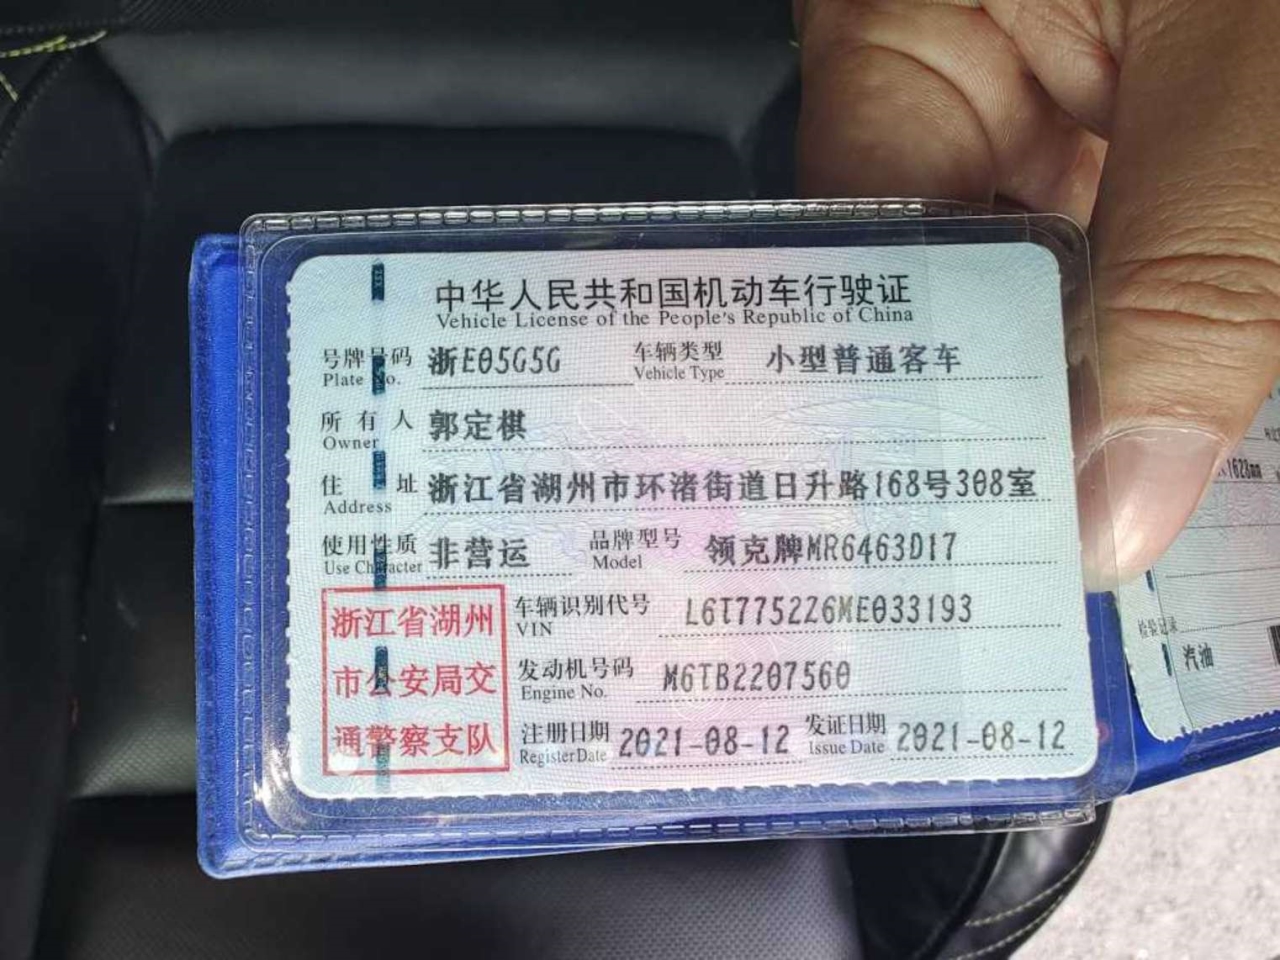 中华人民共和国机动车行驶证
Vehicle License of the People's Republic of China
号牌号码 浙E05G5G 车辆类型 小型普通客车
Plate No. Vehicle Type
所有人 郭定棋
Owner
住址 浙江省湖州市环渚街道日升路168号308室
Address
使用性质 非营运 品牌型号 领克牌MR6463D17
Use Character Model
浙江省湖州
市公安局交
通警察支队
车辆识别代号 L6T7752Z6ME033193
VIN
发动机号码 M6TB2207560
Engine No.
注册日期 2021-08-12 发证日期 2021-08-12
Register Date Issue Date
检验记录
汽油